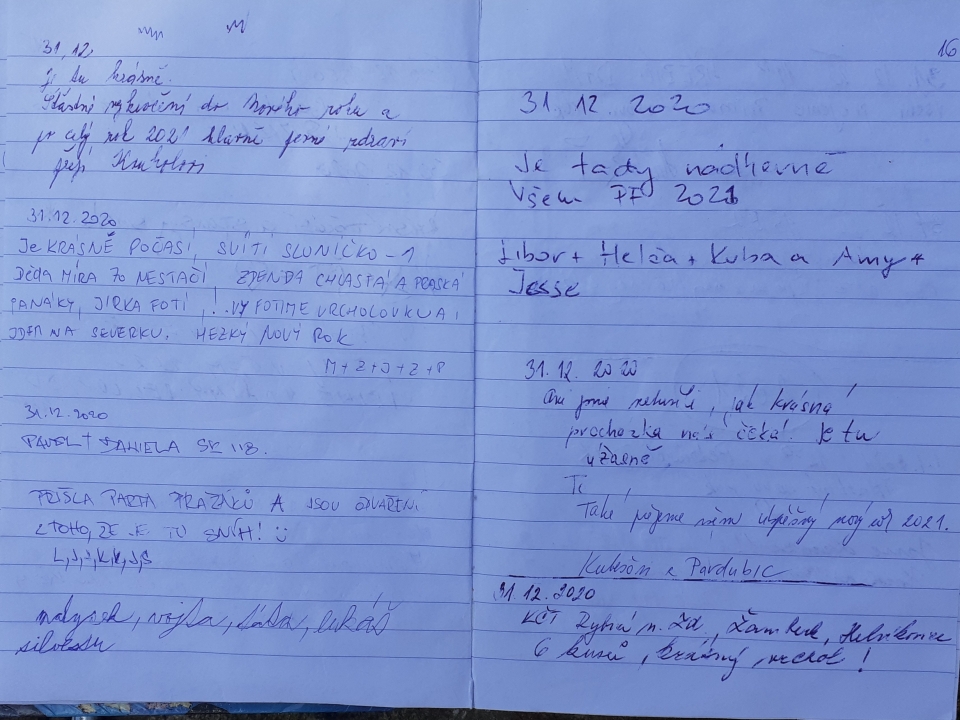 31,12
je tu krásně.
Šťastné vykročení do Nového roku a
po celý rok 2021 hlavně pevné zdraví
přejí
31.12.2020
Je KRÁSNÉ POČASÍ, SVÍTÍ SLUNÍČKO -1
DĚDA MÍRA TO NESTAČÍ, ZDENDA CHLASTÁ A PRASKÁ
PANÁKY, JIRKA FOTÍ, !..VY FOTIME VRCHOLOVKU A
JDEM NA SEVERKU. HEZKÝ NOVÝ ROK
M+Z+J+Z+P
31.12.2020
PAVOL + DANIELA SK 118.
PŘIŠLA PARTA PRAŽÁKŮ A JSOU
Z TOHO, ŽE JE TU SNÍH!
L,J,J,K,K,J,S
vojta, lukáš
16
31.12 2020
Je tady nádherně
Všem PF 2021
Libor + Helča + Kuba a Amy +
Jesse
31.12. 2020
Ani jsme netušili, jak krásná
procházka nás čeká! Je tu
úžasně.
Ti
Také přejeme všem úspěšný nový rok 2021.
z Pardubic
31.12.2020
KČT Rybná n. Zd., Žamberk, Helvíkovice
6 kusů, krásný vrchol!